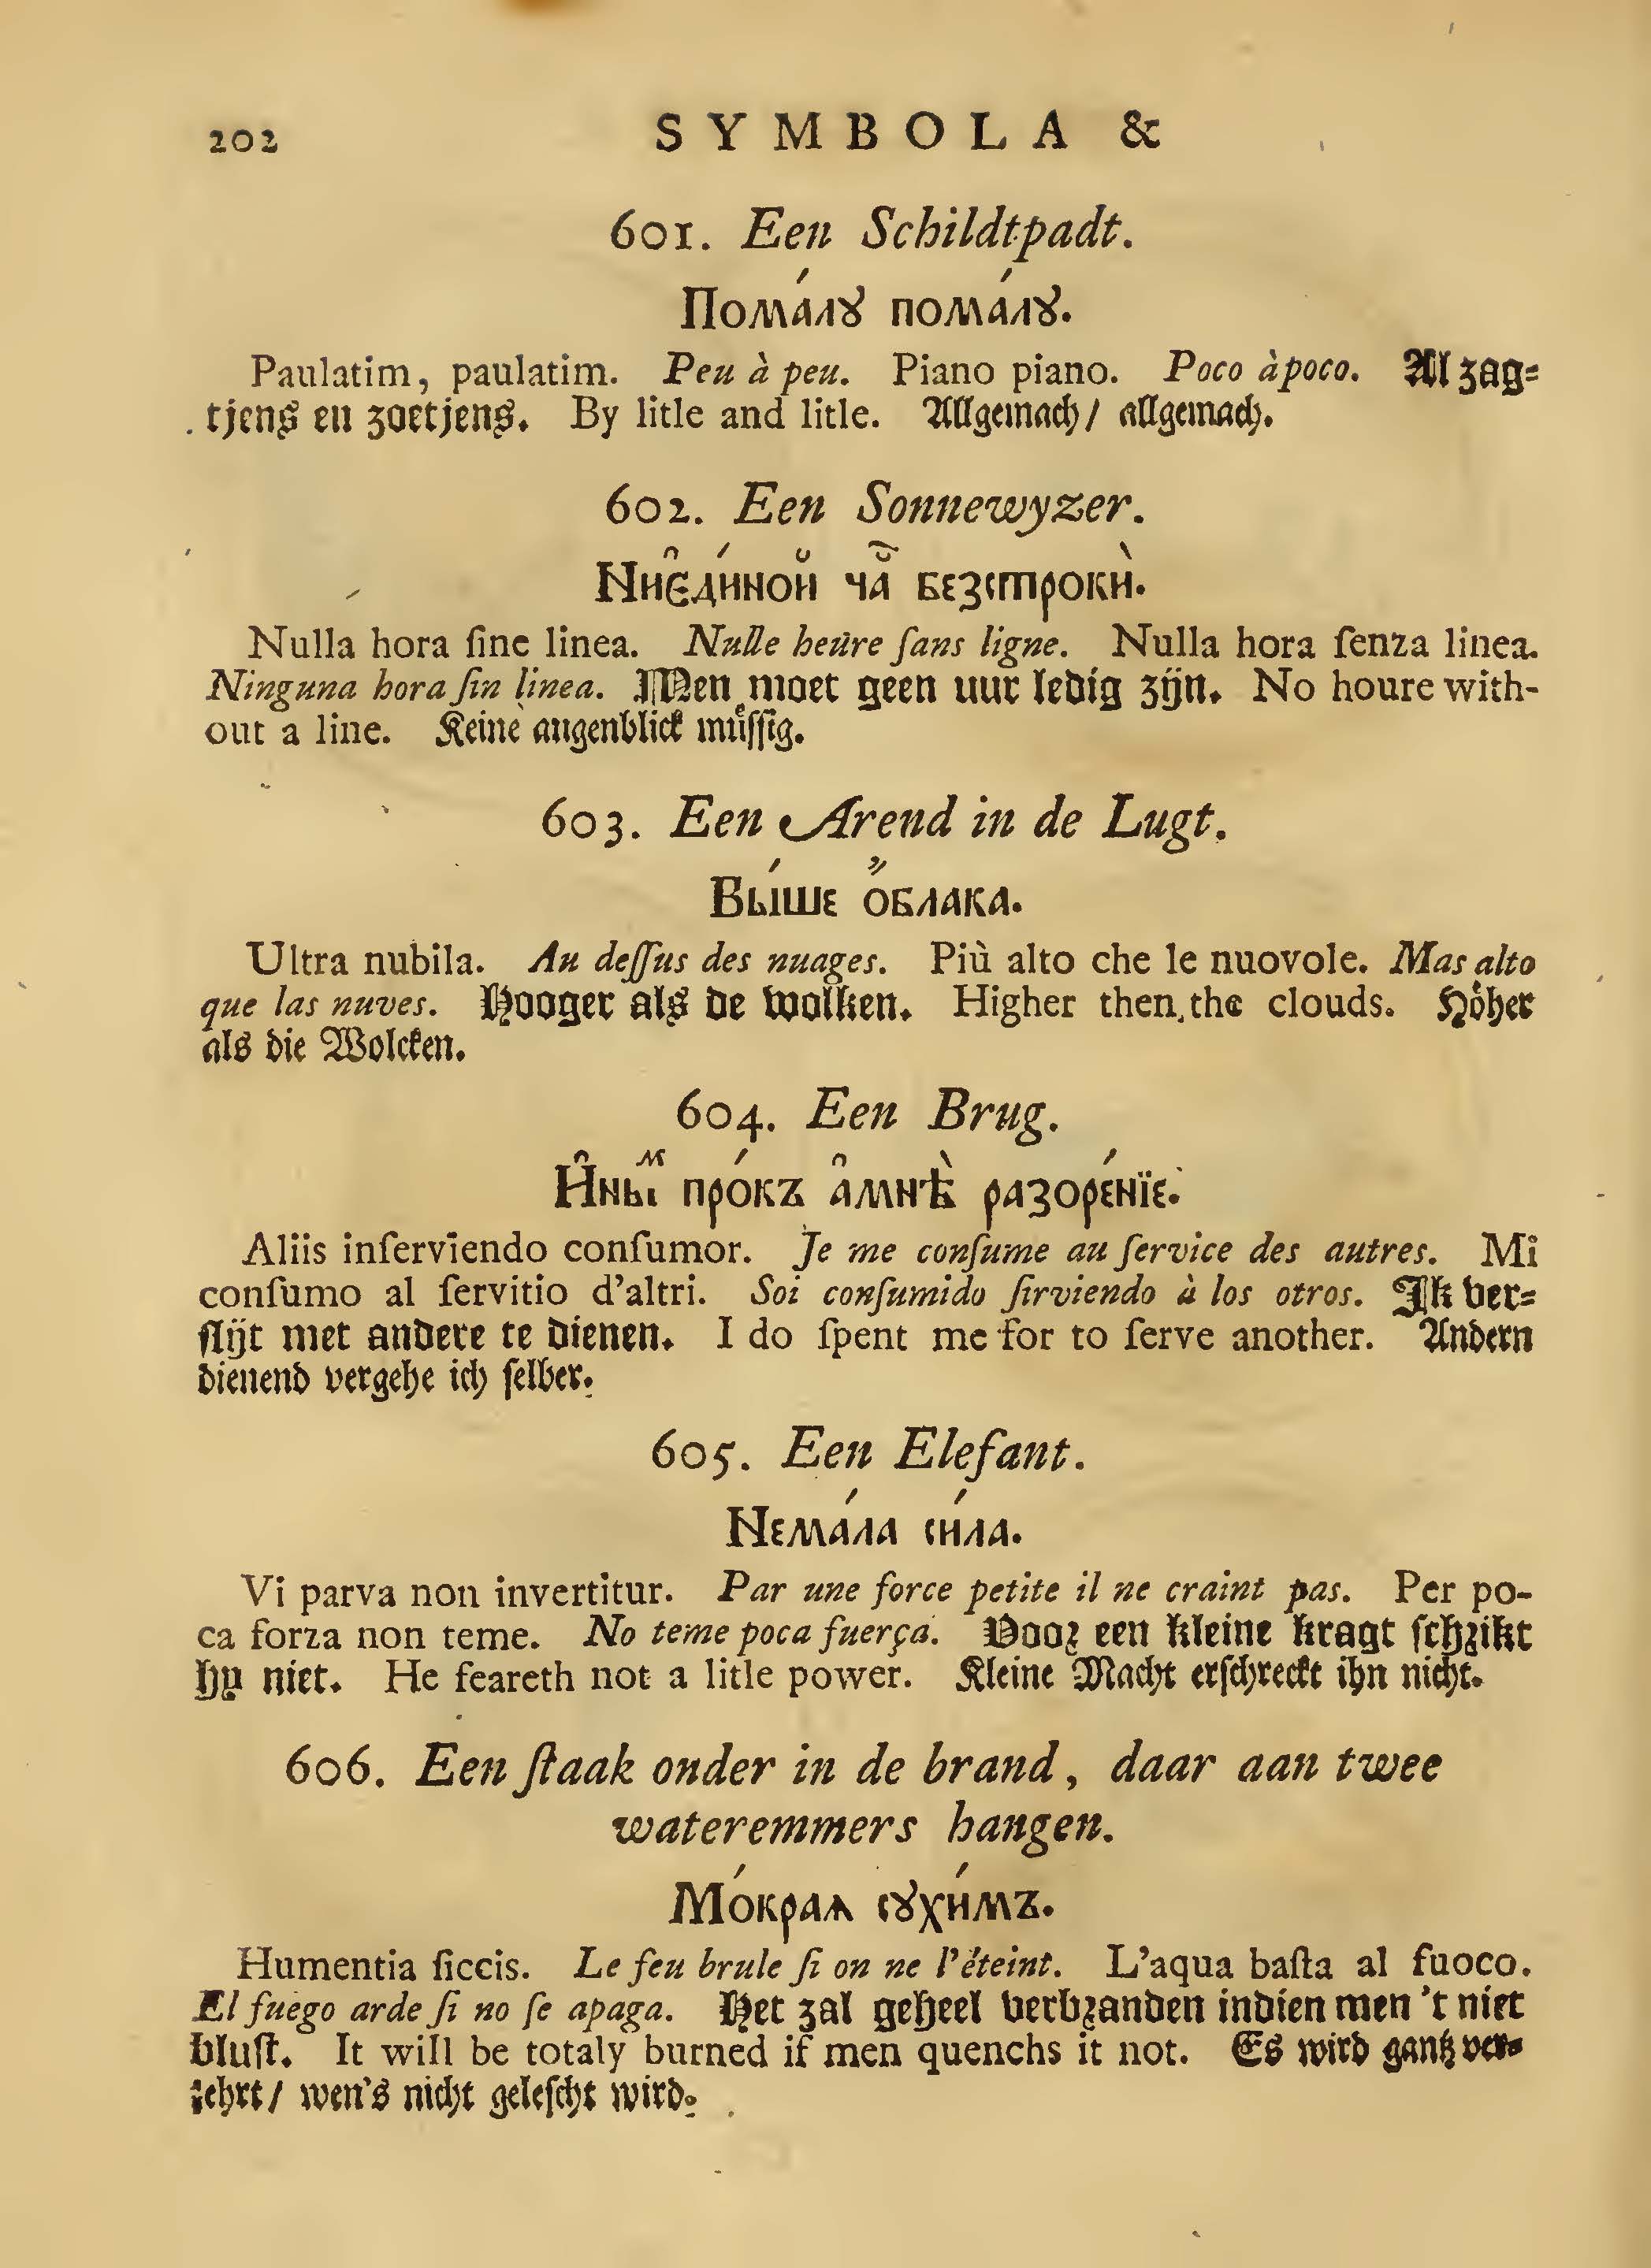 202 SYMBOLA &
601. Een Schildtpadt.
Пома́лꙋ пома́лꙋ.
Paulatim, paulatim. Peu à peu. Piano piano. Poco àpoco. Al zag=
tjens en zoetjens. By litle and litle. Allgemach / allgemach.
602. Een Sonnewyzer.
Ниє҆ди́ной ча҃ безстрокѝ.
Nulla hora ſine linea. Nulle heûre ſans ligne. Nulla hora ſenza linea.
Ninguna hora ſin linea. Men moet geen uur ledig zijn. No houre with-
out a line. Keine augenblick muͤſſig.
603. Een Arend in de Lugt.
Вы́ше ѻ҆́блака.
Ultra nubila. Au deſſus des nuages. Più alto che le nuovole. Mas alto
que las nuves. Hooger als de wolken. Higher then the clouds. Hoͤher
als die Wolcken.
604. Een Brug.
И҆ныⷨ про́къ а҆мнѣ̀ разоре́нїе.
Aliis inſerviendo conſumor. Je me conſume au ſervice des autres. Mi
conſumo al ſervitio d'altri. Soi conſumido ſirviendo à los otros. Ik ver=
ſlijt met andere te dienen. I do ſpent me for to ſerve another. Andern
dienend vergehe ich ſelber.
605. Een Elefant.
Нема́ла си́ла.
Vi parva non invertitur. Par une force petite il ne craint pas. Per po-
ca forza non teme. No teme poca fuerça. Door een kleine kragt ſchrikt
hy niet. He feareth not a litle power. Kleine Macht erſchreckt ihn nicht.
606. Een ſtaak onder in de brand, daar aan twee
wateremmers hangen.
Мо́краѧ сꙋхи́мъ.
Humentia ſiccis. Le feu brule ſi on ne l'éteint. L'aqua baſta al fuoco.
El fuego arde ſi no ſe apaga. Het zal geheel verbranden indien men 't niet
bluſt. It will be totaly burned if men quenchs it not. Es wird gantz ver=
zehrt / wen's nicht geleſcht wird.